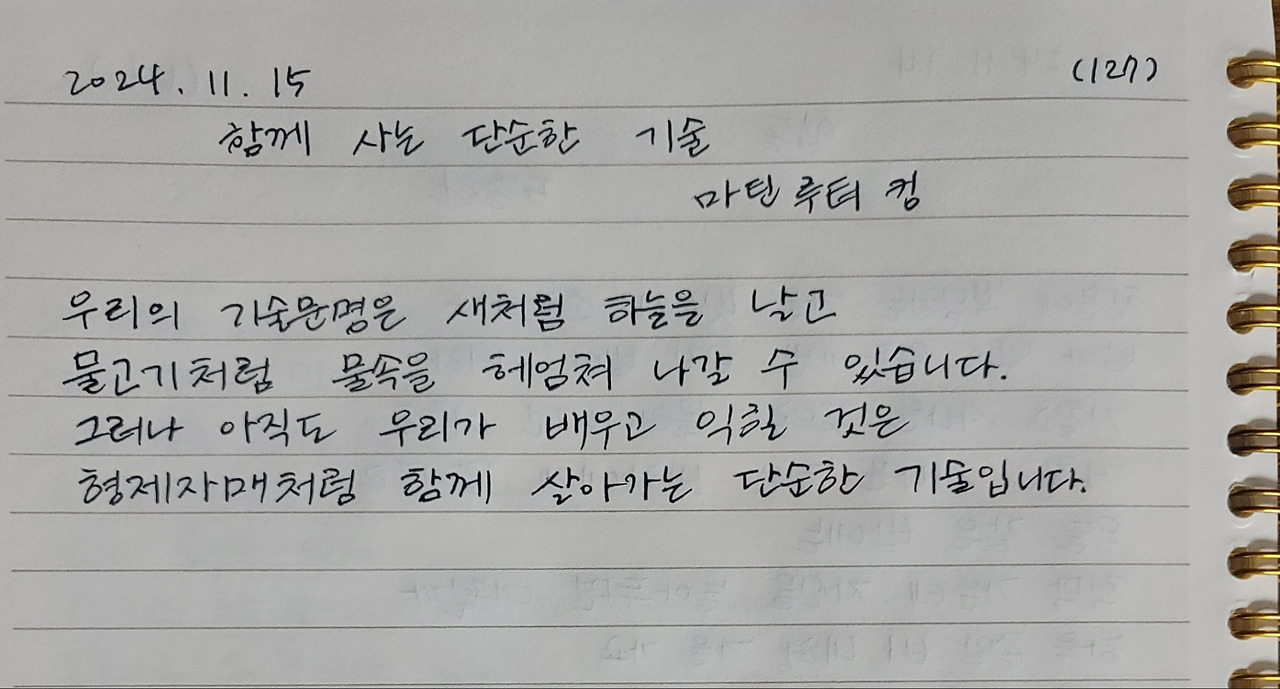 2024. 11. 15
(127)
함께 사는 단순한 기술
마틴 루터 킹
우리의 기술문명은 새처럼 하늘을 날고
물고기처럼 물속을 헤엄쳐 나갈 수 있습니다.
그러나 아직도 우리가 배우고 익힐 것은
형제자매처럼 함께 살아가는 단순한 기술입니다.